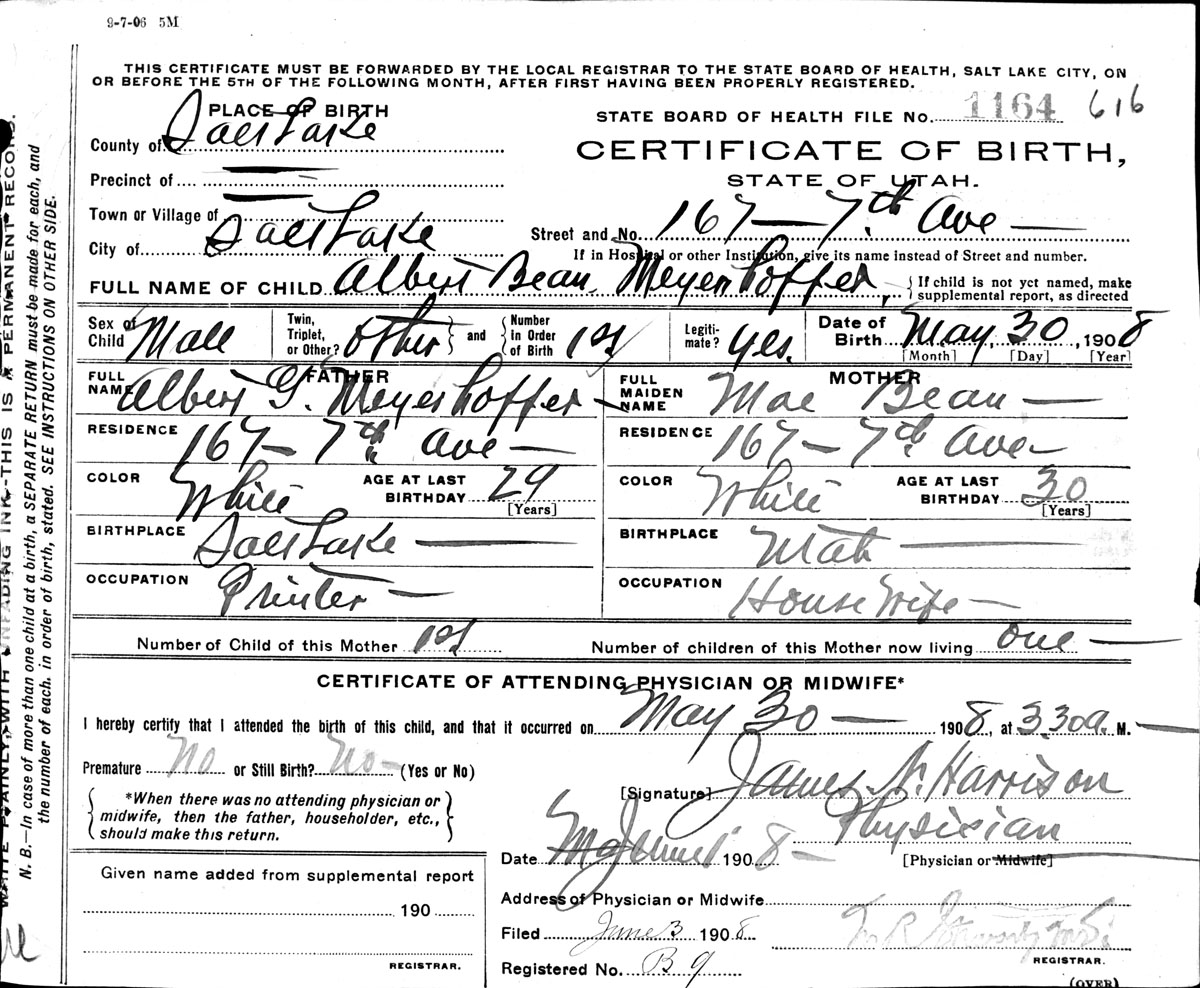 9-7-06 5M
THIS CERTIFICATE MUST BE FORWARDED BY THE LOCAL REGISTRAR TO THE STATE BOARD OF HEALTH, SALT LAKE CITY, ON
OR BEFORE THE 5TH OF THE FOLLOWING MONTH, AFTER FIRST HAVING BEEN PROPERLY REGISTERED.
PLACE OF BIRTH
STATE BOARD OF HEALTH FILE No. 1164 616
County of Salt Lake
CERTIFICATE OF BIRTH,
Precinct of
STATE OF UTAH.
Town or Village of
Street and No. 167 — 7th Ave —
City of Salt Lake
If in Hospital or other Institution, give its name instead of Street and number.
FULL NAME OF CHILD Albert Bean Meyenhoffer, } If child is not yet named, make supplemental report, as directed
Sex of Child Male
Twin, Triplet, or Other? Other } and { Number in Order of Birth 1st
Legitimate? Yes.
Date of Birth May 30, 1908
[Month] [Day] [Year]
FATHER
FULL NAME Albert G. Meyerhoffer —
RESIDENCE 167 — 7th Ave —
COLOR White AGE AT LAST BIRTHDAY 29 [Years]
BIRTHPLACE Salt Lake —
OCCUPATION Printer —
MOTHER
FULL MAIDEN NAME Mae Bean —
RESIDENCE 167 — 7th Ave —
COLOR White AGE AT LAST BIRTHDAY 30 [Years]
BIRTHPLACE Utah —
OCCUPATION House Wife —
Number of Child of this Mother 1st Number of children of this Mother now living one —
CERTIFICATE OF ATTENDING PHYSICIAN OR MIDWIFE*
I hereby certify that I attended the birth of this child, and that it occurred on May 30 — 1908, at 3.30a. M. —
Premature No or Still Birth? No — (Yes or No)
*When there was no attending physician or
midwife, then the father, householder, etc.,
should make this return.
[Signature] James N. Harrison
Physician
Date June 1 1908 — [Physician or Midwife]
Given name added from supplemental report
190
REGISTRAR.
Address of Physician or Midwife
Filed June 3 1908.
REGISTRAR.
Registered No. B 9
(OVER)
WRITE PLAINLY WITH UNFADING INK—THIS IS A PERMANENT RECORD.
N. B.—In case of more than one child at a birth, a SEPARATE RETURN must be made for each, and
the number of each. in order of birth, stated. SEE INSTRUCTIONS ON OTHER SIDE.